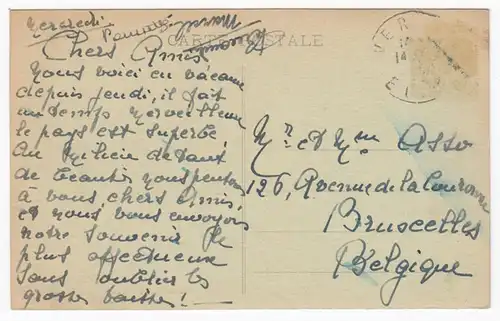 Mercredi
CARTE POSTALE
Chers Amis
Nous voici en vacance
depuis jeudi, il fait
un temps merveilleux
le pays est superbe
Au milieu de tant
de beautés nous pensons
à vous, chers Amis,
et nous vous envoyons
notre souvenir le
plus affectueux
sans oublier les
grosses baises! —
Mr et Mme Asso
126, Avenue de la Couronne
Bruxcelles
Belgique